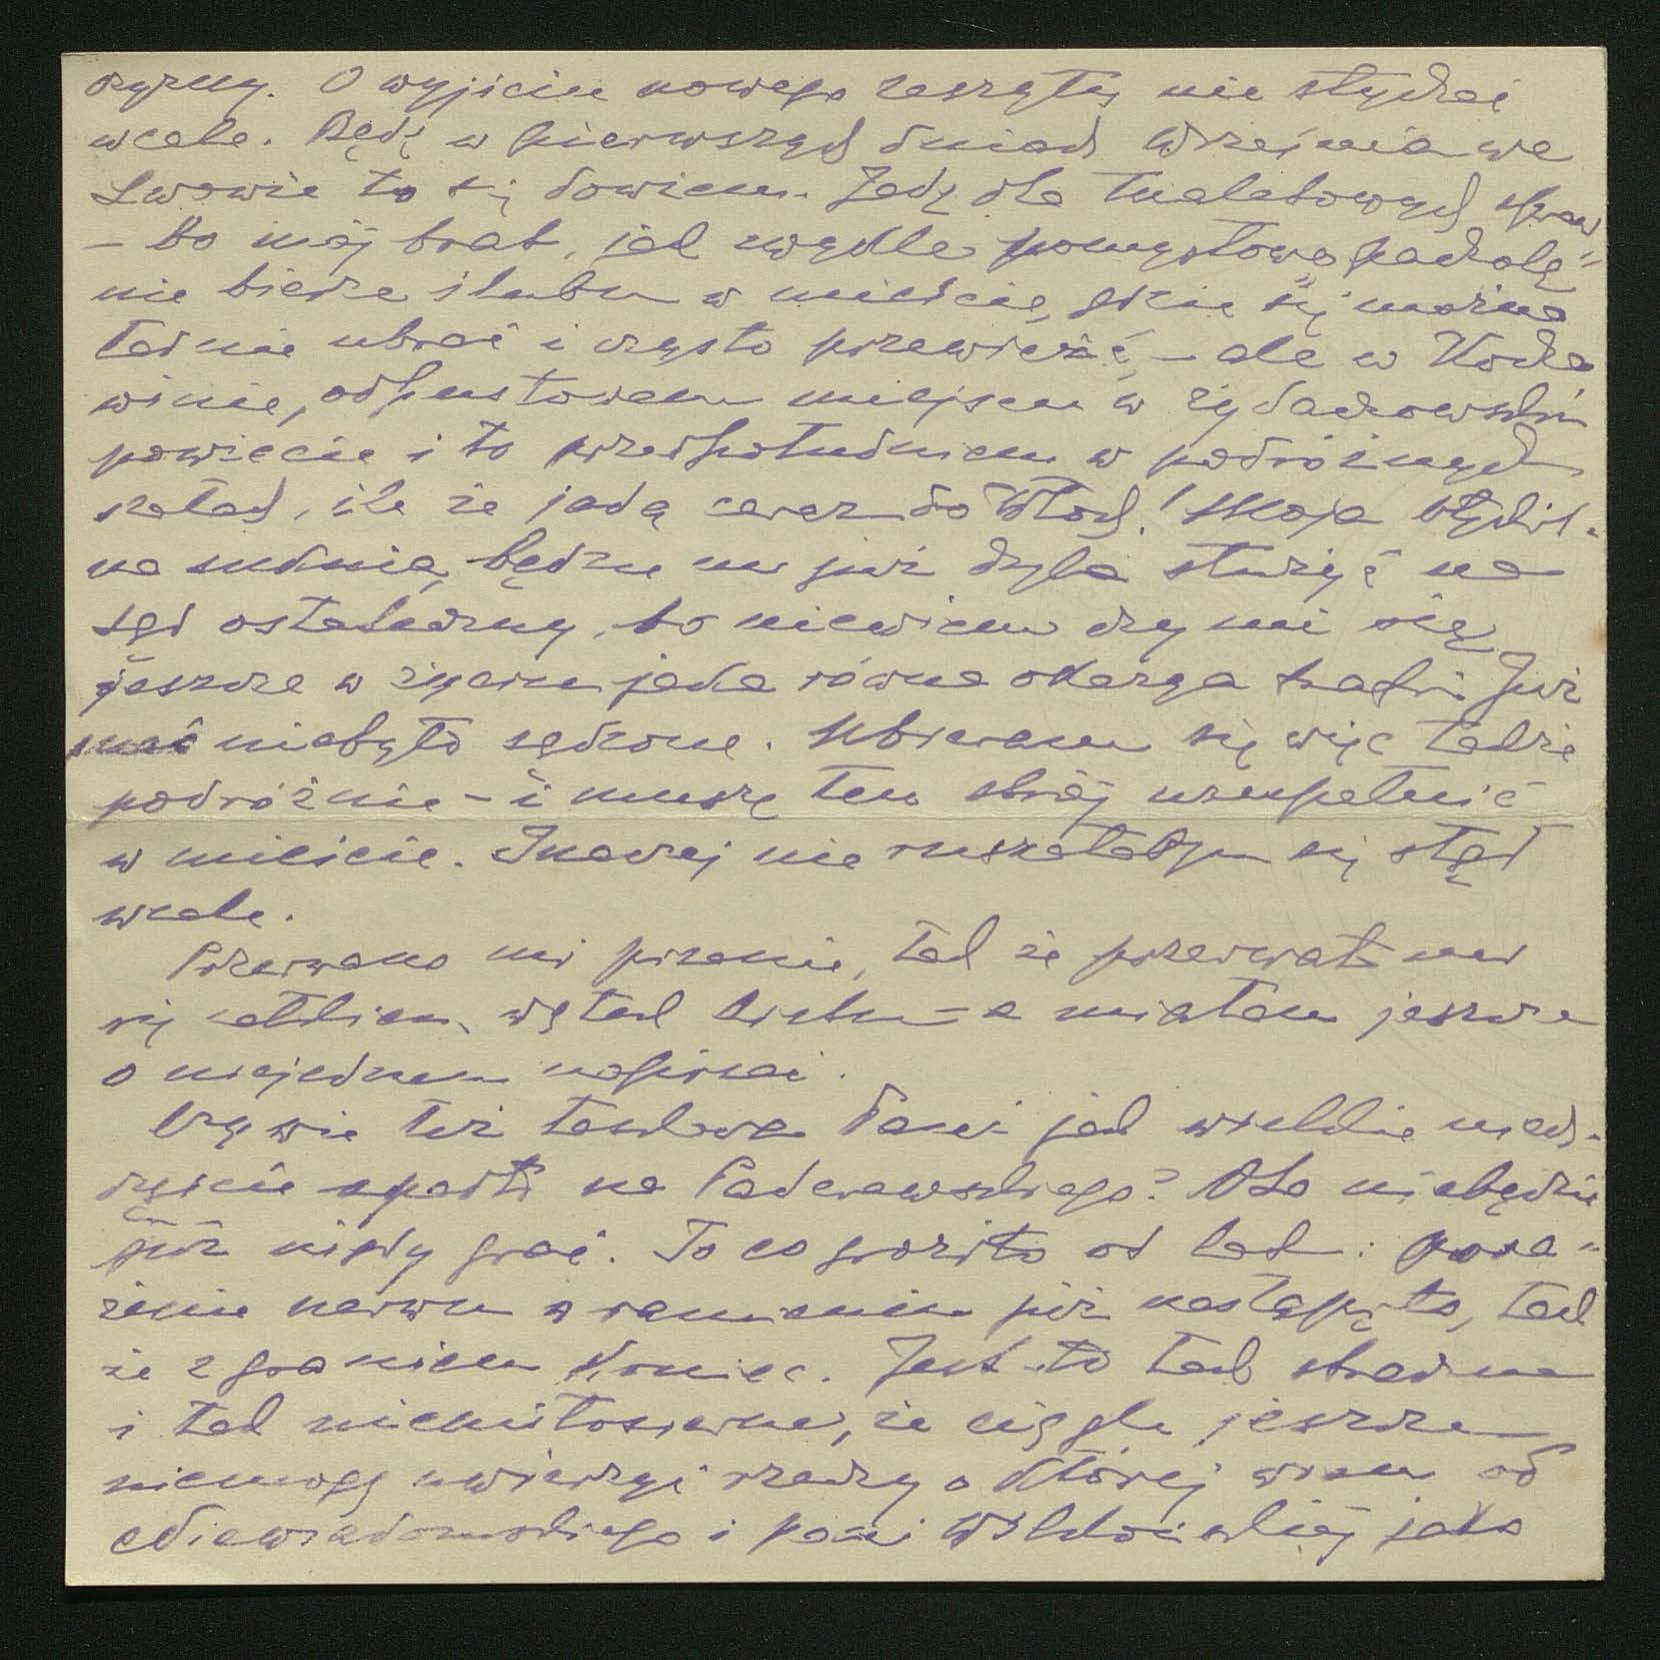 O wyjściu nowego zeszytu nie słychać
wcale. Będę w pierwszych dniach września we
Lwowie to się dowiem. Jadę dla tualetowych spraw
– bo mój brat, jak zwykle pomysłowe pacholę
nie bierze ślubu w mieście, gdzie się można
ładnie ubrać i czysto przewieźć – ale w Kocha
winie, odpustowem miejscu w żydaczowskim
powiecie i to przedpołudniem w podróżnych
szatach, ile że jadą zaraz do Włoch! Moja
suknia będzie mi już chyba służyć na
sąd ostateczny, bo niewiem czy mi się
jeszcze w życiu jaka równa okazya trafi. Już
niebyło sądzone. Ubieram się więc także
podróżnie – i muszę ten strój uzupełnić
w mieście. Inaczej nie ruszałabym się stąd
wcale.
Przerwano mi pisanie, tak że przerwał mi
się całkiem wątek listu – a miałam jeszcze
o niejednem napisać.
Czy wie też łaskawa Pani jak wielkie nieszczę-
ście spadło na Paderewskiego? Oto niebędzie
już nigdy grać. To co groziło od lat: pora-
żenie nerwu w ramieniu już nastąpiło, tak
że z graniem koniec. Jest to tak straszne
i tak niemiłosierne, że ciągle jeszcze
niemogę uwierzyć rzeczy o której wiem od
Niewiadomskiego i pani jako